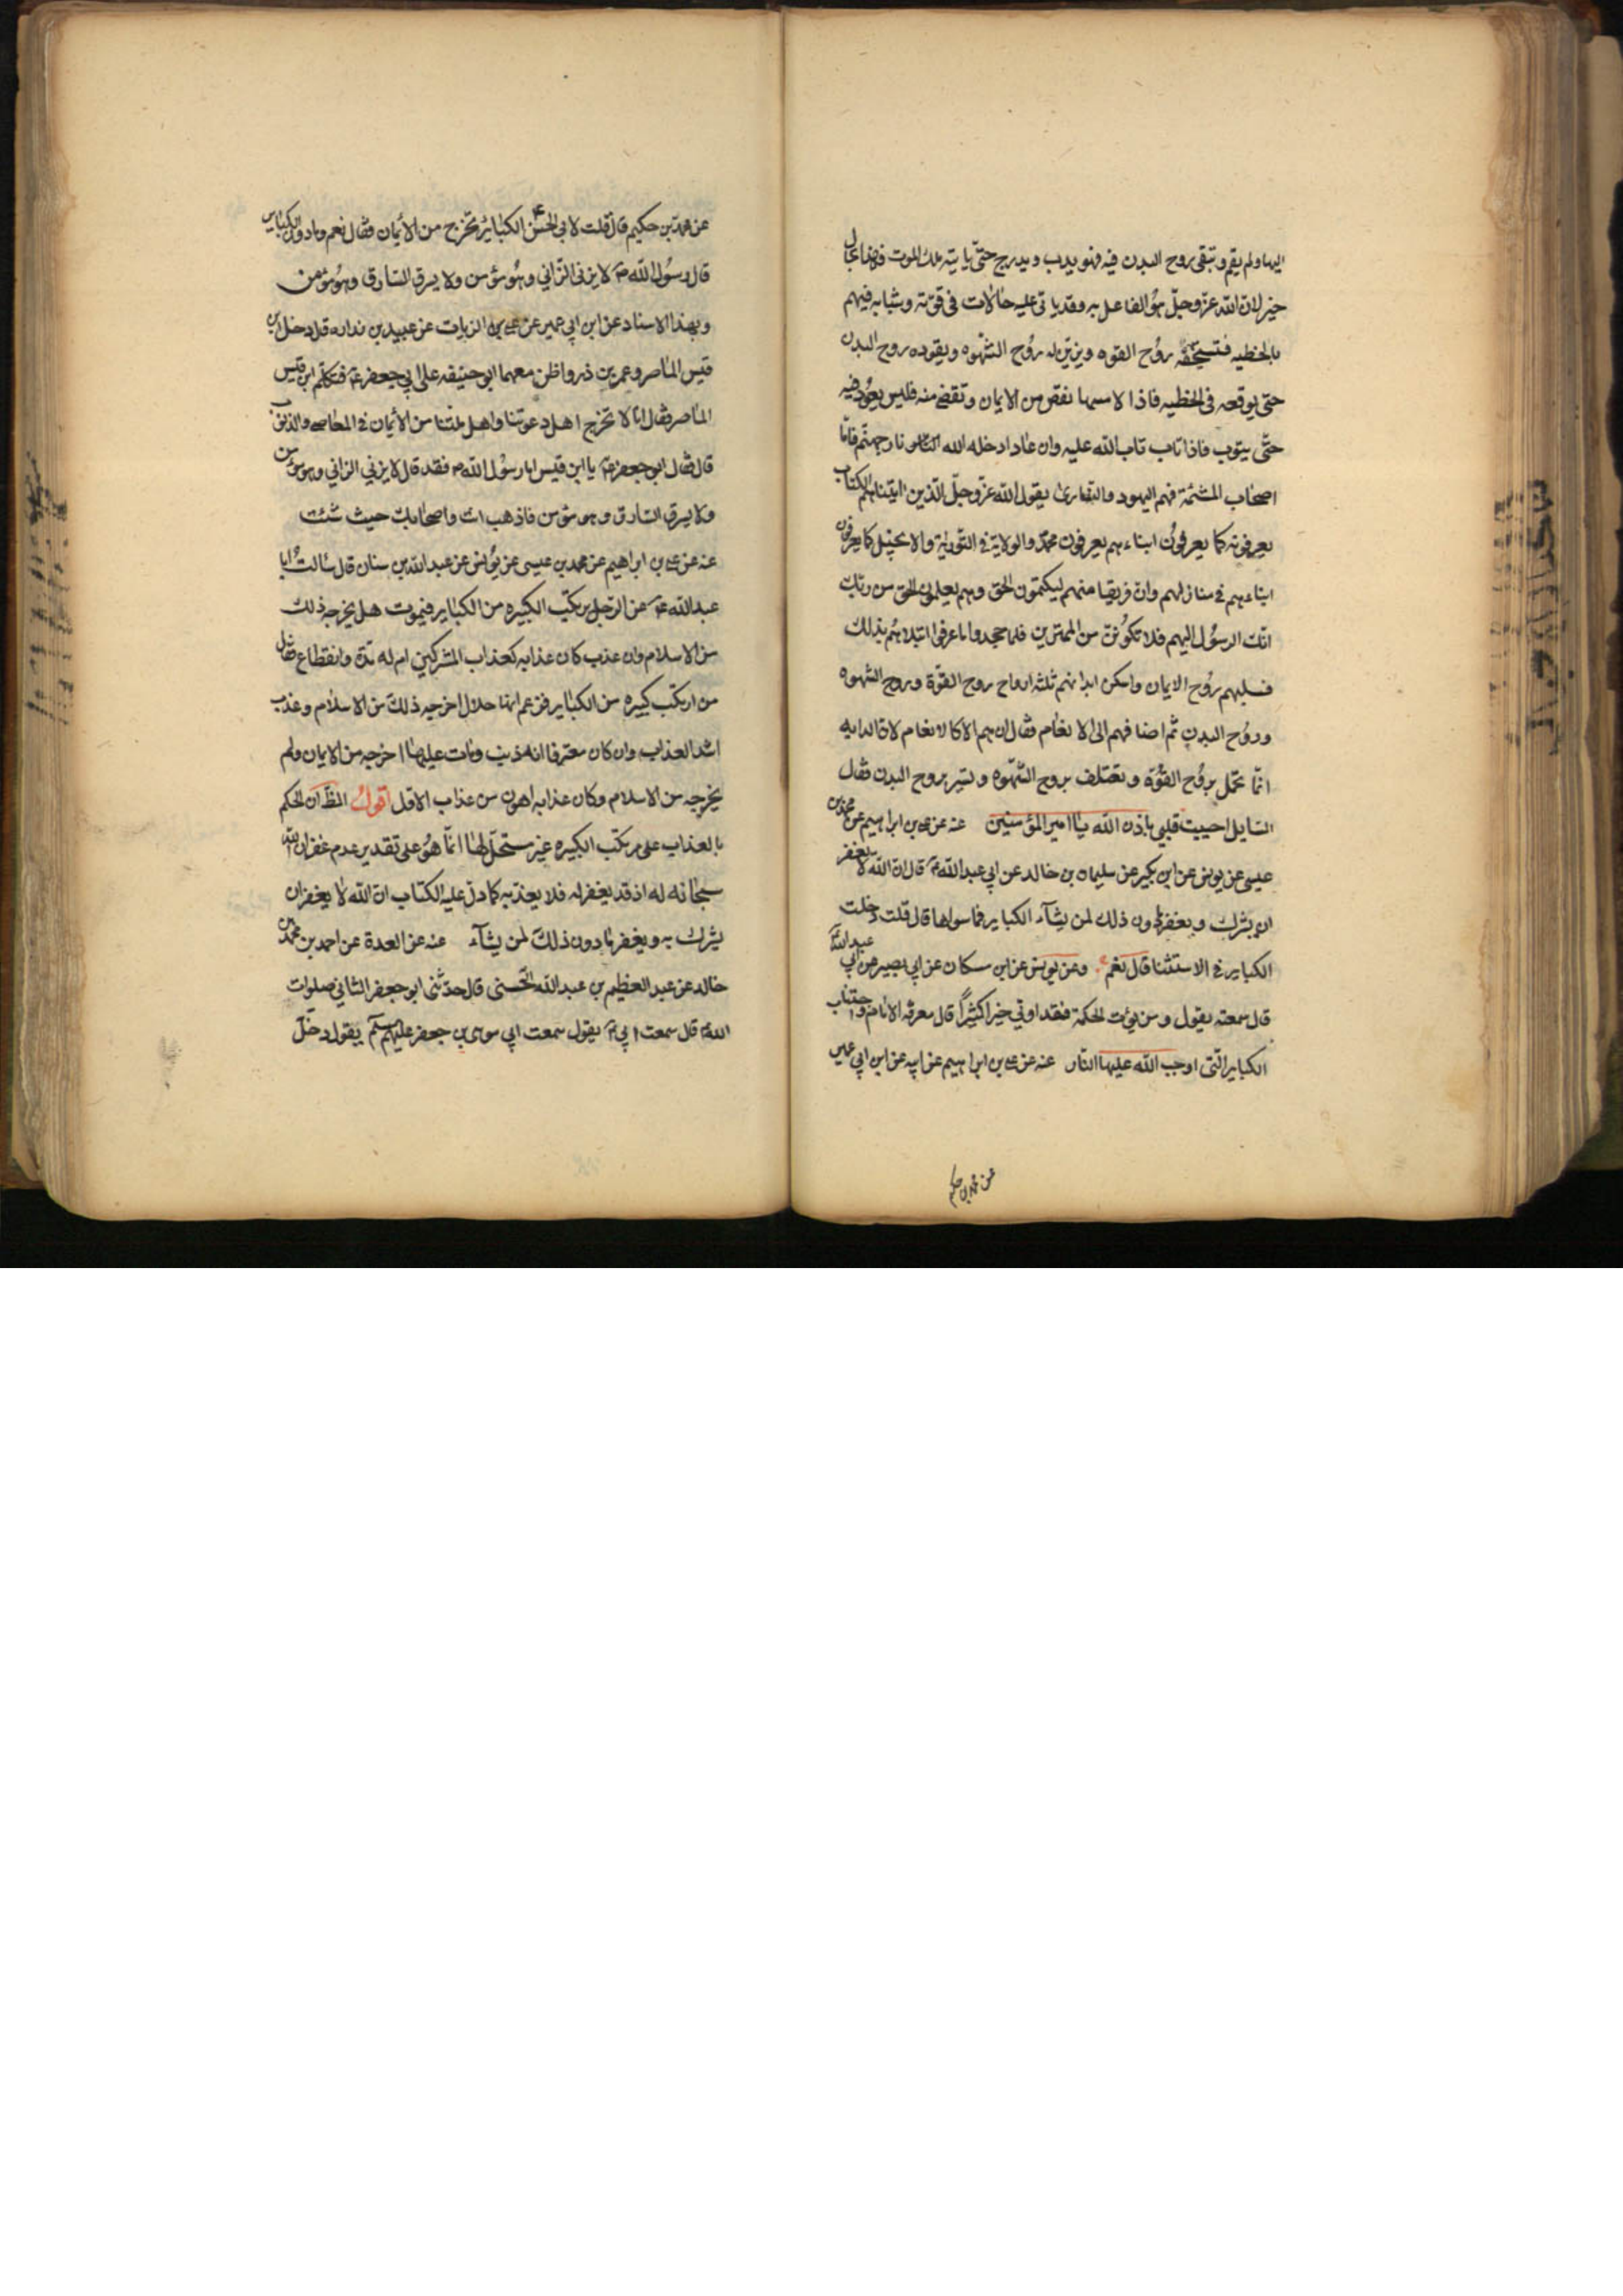 اليها ولم يقم وتبقى روح البدن فيه فهو يدب ويدرج حتّى ياتيه ملك الموت فهذا بحال
خير لان الله عزّ وجلّ هو الفاعل به وقد ياتى عليه حالات فى قوّته وشبابه فيهم
بالخطيه فتشجّعه روُح القوه ويزيّن له روُح الشّهوه ويقوده روح البدن
حتى يوقعه فى الخطيه فاذا لامسها نقص من الايمان وتقضى منه فليس يعوُد فيه
حتّى يتوب فاذا تاب تاب الله عليه وان عاد ادخله الله نار جهنّم فامّا
اصحاب المشئمة فهم اليهود والنصارى يقول الله عزّ وجلّ الّذين اتيناهم الكتاب
يعرفونه كما يعرفوُن ابناءهم يعرفون محمّد والولاية فى التّورية والانجيل كما يعرفون
ابناءهم فى منازلهم وان فريقا منهم ليكتمون الحق وهم يعلمون الحق من ربك
انّك الرسوُل اليهم فلا تكوُننّ من الممترين فلما جحدوا ما عرفوا ابتلاهُم بذلك
فسلبهم روُح الايمان واسكن ابدانهم ثلثه ارواح روح القوّة وروح الشهوه
وروُح البدن ثم اضافهم الى الانعام فقال ان هم الا كالانعام لان الدابه
انّما تحمل بروُح القوُّه وتعتلف بروح الشّهوه وتسير بروح البدن فقال
السّايل احييت قلبى باذن الله يا امير المؤمنين عنه عن على بن ابراهيم عن محمد بن
عيسى عن يونس عن ابن بكير عن سليمان بن خالد عن ابى عبد الله ع قال ان الله لا يغفر
ان يشرك به ويغفر ما دون ذلك لمن يشآء الكباير فما سواها قال قلت دخلت
الكباير فى الاستثنا قال نعم وعن يونس عن ابن مسكان عن ابى بصير عن ابى عبد الله
قال سمعته يقول ومن يؤت الحكمة فقد اوتى خيرا كثيراً قال معرفه الامام واجتناب
الكباير الّتى اوجب الله عليها النّار عنه عن على بن ابراهيم عن ابيه عن ابن ابى عمير
عن محمد بن حكيم
عن محمّد بن حكيم قال قلت لابى الحسن ع الكبايرُ تخرج من الأيمان فقال نعم وما دون الكباير
قال رسوُل الله ص لا يزنى الزّانى وهُو مؤمن ولا يسرق السّارق وهُو مؤمن
وبهذا الاسناد عن ابن ابى عمير عن على بن الزيات عن عبيد بن زراره قال دخل ابن
قيس الماصر وعمر بن ذر واظن معهما ابو حنيفه على ابى جعفر ع فتكلّم ابن قيس
الماصر فقال انا لا نخرج اهل دعوتنا واهل ملتنا من الأيمان فى المعاصى والذنوب
قال فقال ابو جعفر ع يا ابن قيس اما رسوُل الله ص فقد قال لا يزنى الزانى وهو مؤمن
ولا يسرق السّارق وهو مؤمن فاذهب انت واصحابك حيث شئت
عنه عن على بن ابراهيم عن محمد بن عيسى عن يوُنس عن عبد الله بن سنان قال سالتُ ابا
عبد الله ع عن الرّجل يرتكب الكبيره من الكباير فيموت هل يخرجه ذلك
من الاسلام وان عذب كان عذابه كعذاب المشركين ام له مدّة وانقطاع فقال
من ارتكب كبيره من الكباير فزعم انها حلال اخرجه ذلك من الاسلام وعذب
اشد العذاب وان كان معترفا انه ذنب ومات عليها اخرجه من الايمان ولم
يخرجه من الاسلام وكان عذابه اهون من عذاب الاول اقولُ الظّ ان الحكم
بالعذاب على مرتكب الكبيره غير مستحلّ لها انّما هُو على تقدير عدم غفران الله
سبحانه له اذ قد يغفر له فلا يعذبه كما دلّ عليه الكتاب ان الله لا يغفر ان
يشرك به ويغفر ما دون ذلك لمن يشآء عنه عن العدة عن احمد بن محمّد بن
خالد عن عبد العظيم بن عبد الله الحسنى قال حدّثنى ابو جعفر الثانى صلوات
الله ع قال سمعت ابى ع يقول سمعت ابى موسى بن جعفر عليهم سلم يقول دخل